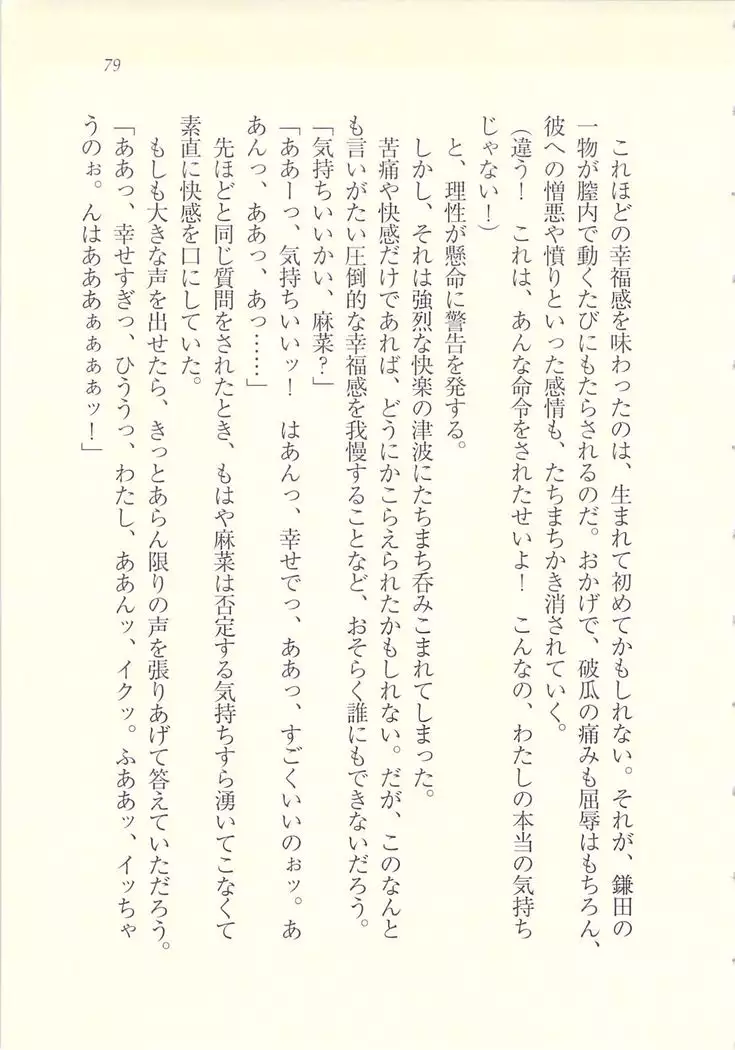 79
　これほどの幸福感を味わったのは、生まれて初めてかもしれない。それが、鎌田の
一物が膣内で動くたびにもたらされるのだ。おかげで、破瓜の痛みも屈辱はもちろん、
彼への憎悪や憤りといった感情も、たちまちかき消されていく。
（違う！　これは、あんな命令をされたせいよ！　こんなの、わたしの本当の気持ち
じゃない！）
　と、理性が懸命に警告を発する。
　しかし、それは強烈な快楽の津波にたちまち呑みこまれてしまった。
　苦痛や快感だけであれば、どうにかこらえられたかもしれない。だが、このなんと
も言いがたい圧倒的な幸福感を我慢することなど、おそらく誰にもできないだろう。
「気持ちいいかい、麻菜？」
「ああーっ、気持ちいいッ！　はあんっ、幸せでっ、ああっ、すごくいいのぉッ。あ
あんっ、ああっ、あっ……」
　先ほどと同じ質問をされたとき、もはや麻菜は否定する気持ちすら湧いてこなくて
素直に快感を口にしていた。
　もしも大きな声を出せたら、きっとあらん限りの声を張りあげて答えていただろう。
「ああっ、幸せすぎっ、ひううっ、わたし、ああんッ、イクッ。ふああッ、イッちゃ
うのぉ。んはあああぁぁぁぁッ！」